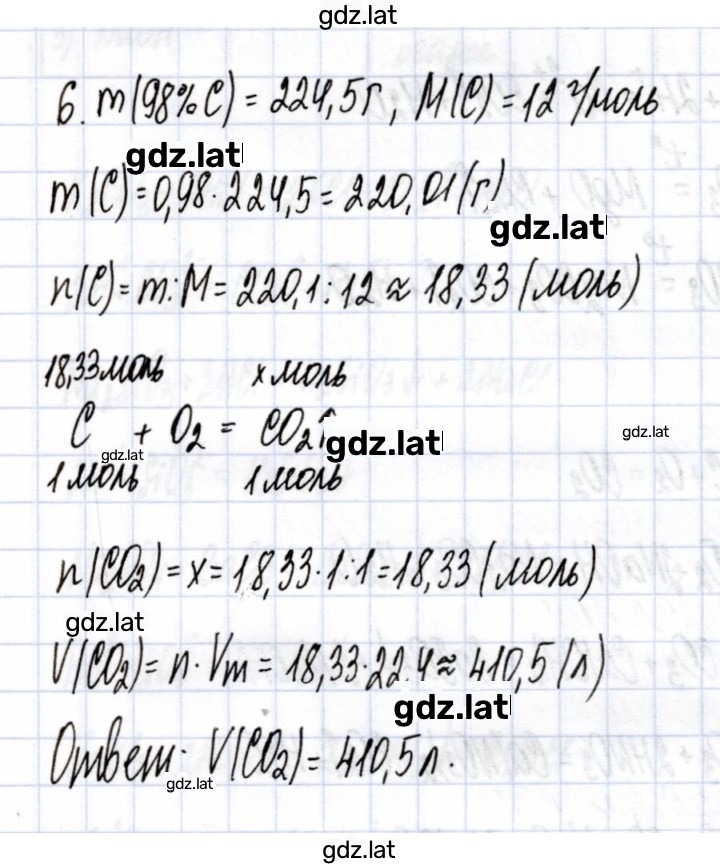 gdz.lat
6. m(98%C) = 224,5г, M(C) = 12 г/моль
gdz.lat
m(C) = 0,98·224,5 = 220,01(г)
gdz.lat
n(C) = m:M = 220,1:12 ≈ 18,33 (моль)
18,33 моль x моль
C + O₂ = CO₂↑
gdz.lat
gdz.lat
gdz.lat
1 моль 1 моль
n(CO₂) = x = 18,33·1:1 = 18,33 (моль)
gdz.lat
V(CO₂) = n·Vm = 18,33·22,4 ≈ 410,5 (л)
gdz.lat
Ответ: V(CO₂) = 410,5 л.
gdz.lat
gdz.lat